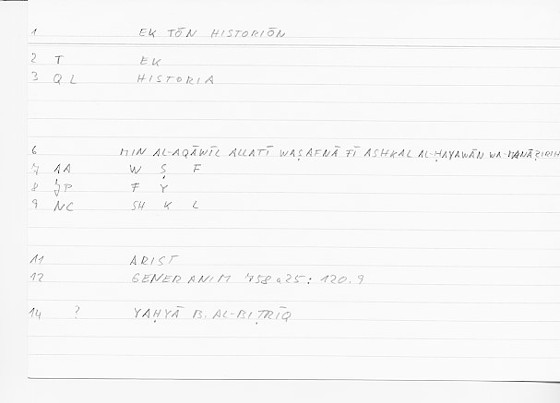 1 EK TŌN HISTORIŌN
2 T EK
3 QL HISTORIA
6 MIN AL-AQĀWĪL ALLATĪ WAṢAFNĀ FĪ ASHKAL AL-ḤAYAWĀN WA-MANĀẒIRIH
7 AA W Ṣ F
8 JP F Y
9 NC SH K L
11 ARIST
12 GENER ANIM 758a25 : 120.9
14 ? YAḤYĀ B. AL-BIṬRĪQ